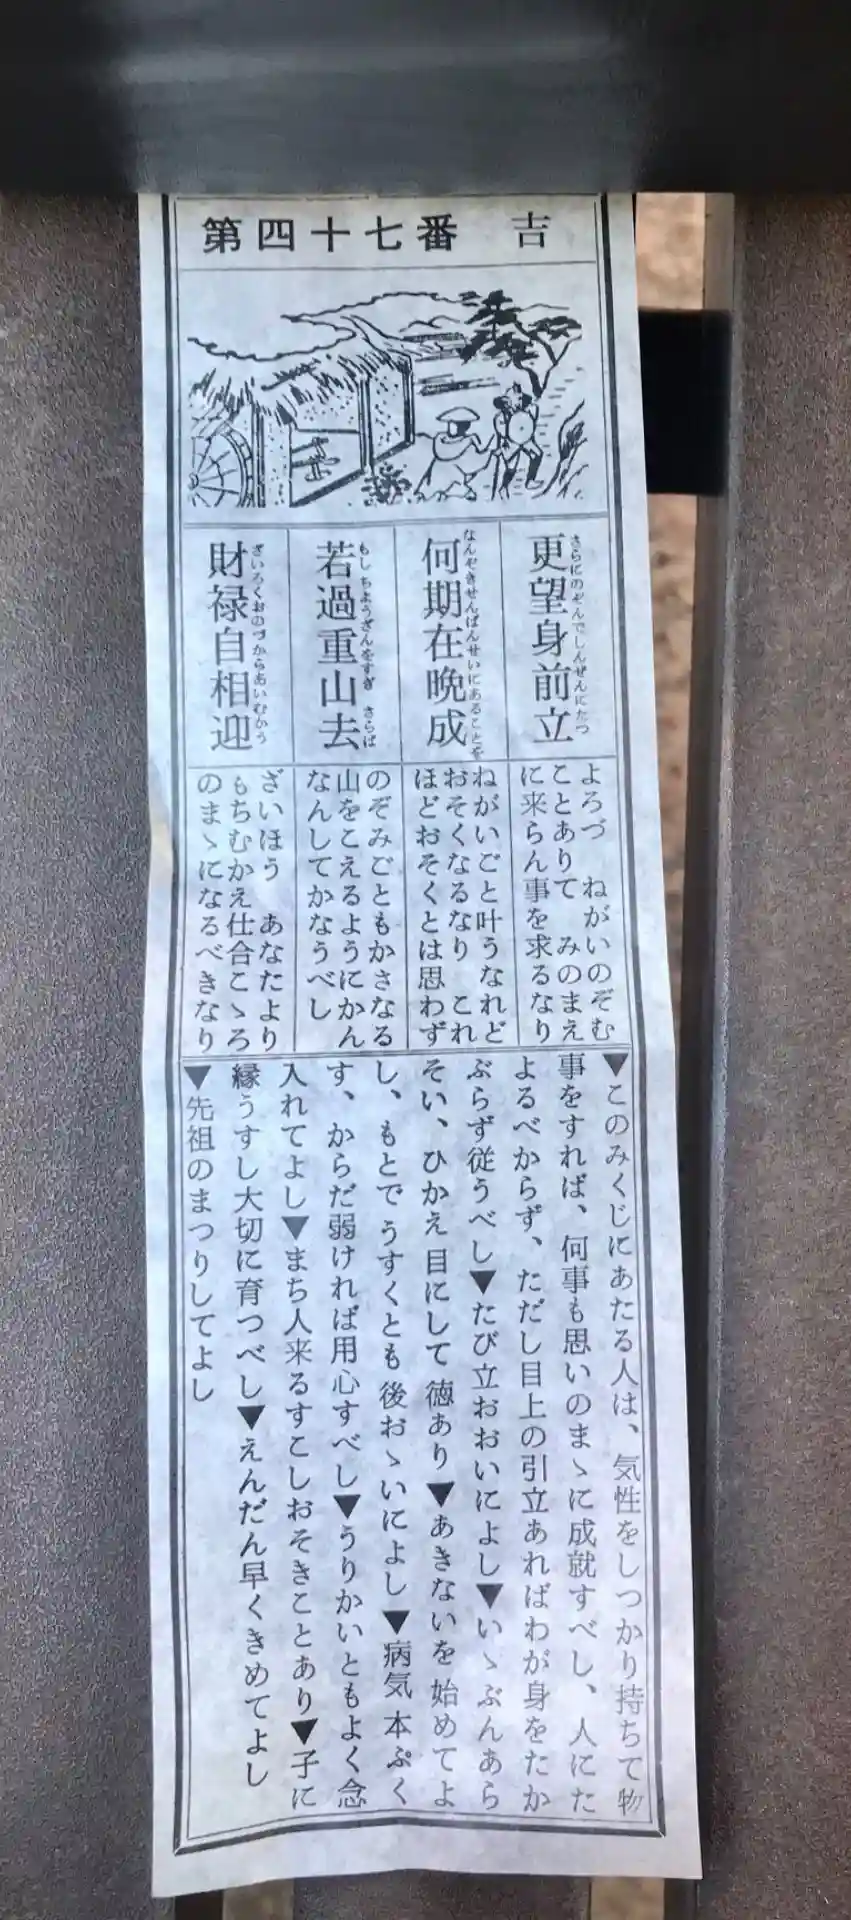 第四十七番　吉
更望身前立
さらにのぞんでしんぜんにたつ
何期在晩成
なんぞきせんばんせいにあることを
若過重山去
もし ちようざんをすぎ さらば
財禄自相迎
ざいろくおのづからあいむかう
よろづ　ねがいのぞむ
ことありて　みのまえ
に来らん事を求るなり
ねがいごと叶うなれど
おそくなるなり　これ
ほどおそくとは思わず
のぞみごともかさなる
山をこえるようにかん
なんしてかなうべし
ざいほう　あなたより
もちむかえ仕合こゝろ
のまゝになるべきなり
▼このみくじにあたる人は、気性をしつかり持ちて物
事をすれば、何事も思いのまゝに成就すべし、人にた
よるべからず、ただし目上の引立あればわが身をたか
ぶらず従うべし▼たび立おおいによし▼いゝぶんあら
そい、ひかえ目にして徳あり▼あきないを始めてよ
し、もとでうすくとも後おゝいによし▼病気本ぷく
す、からだ弱ければ用心すべし▼うりかいともよく念
入れてよし▼まち人来るすこしおそきことあり▼子に
縁うすし大切に育つべし▼えんだん早くきめてよし
▼先祖のまつりしてよし